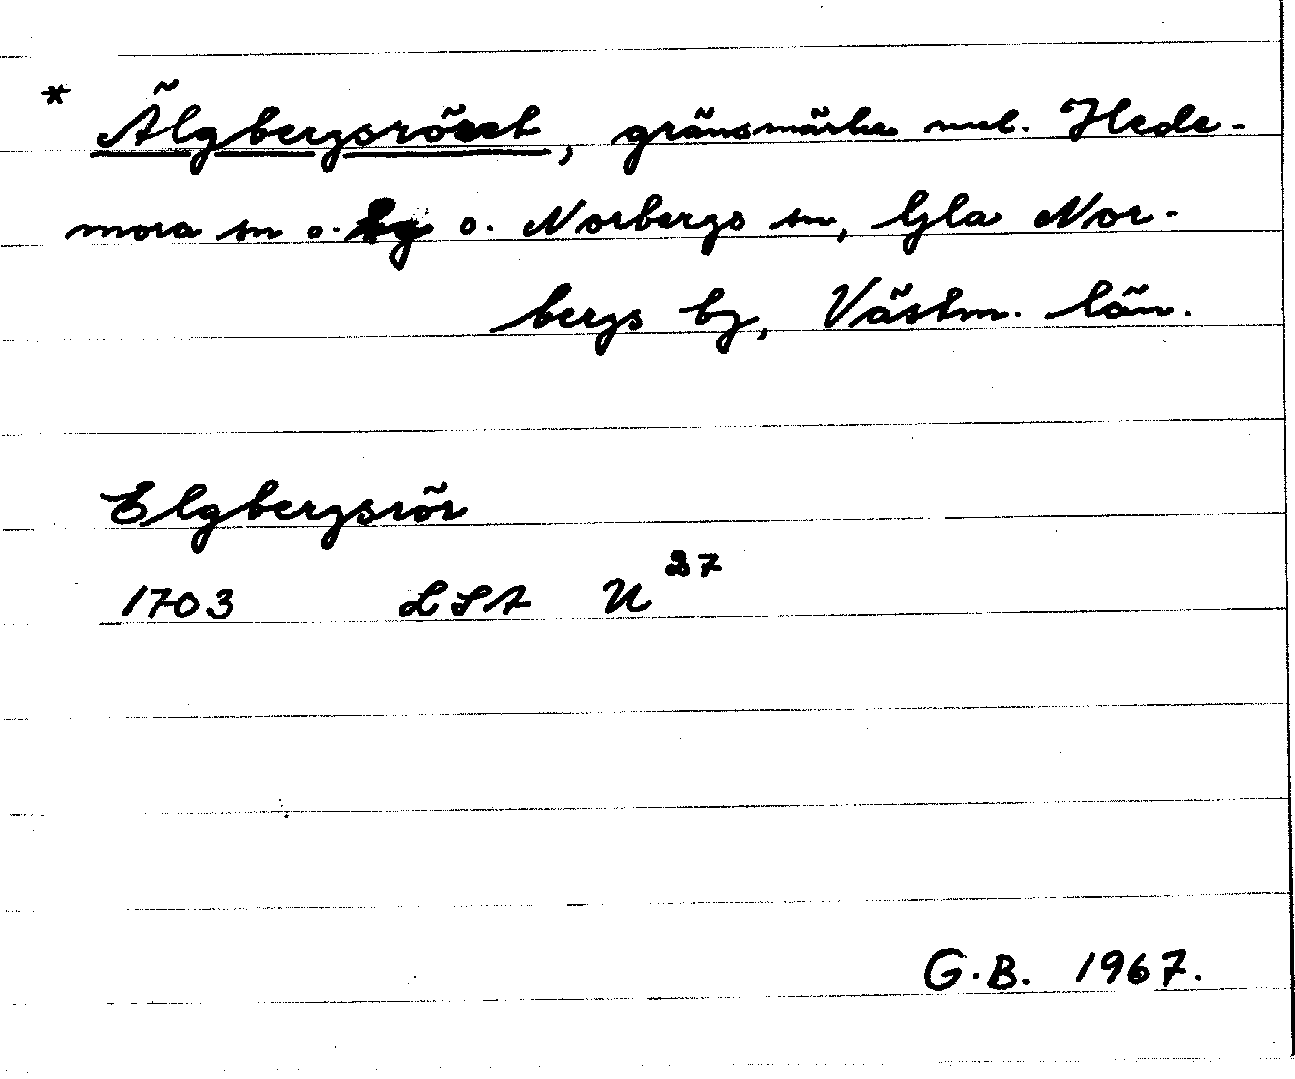 * Älgbergsröset, gränsmärke mel. Hede-
mora sn o. o. Norbergs sn, Gla Nor-
bergs bg, Västm. län.
Elgbergsrör
1703 LSA U 27
G.B. 1967.